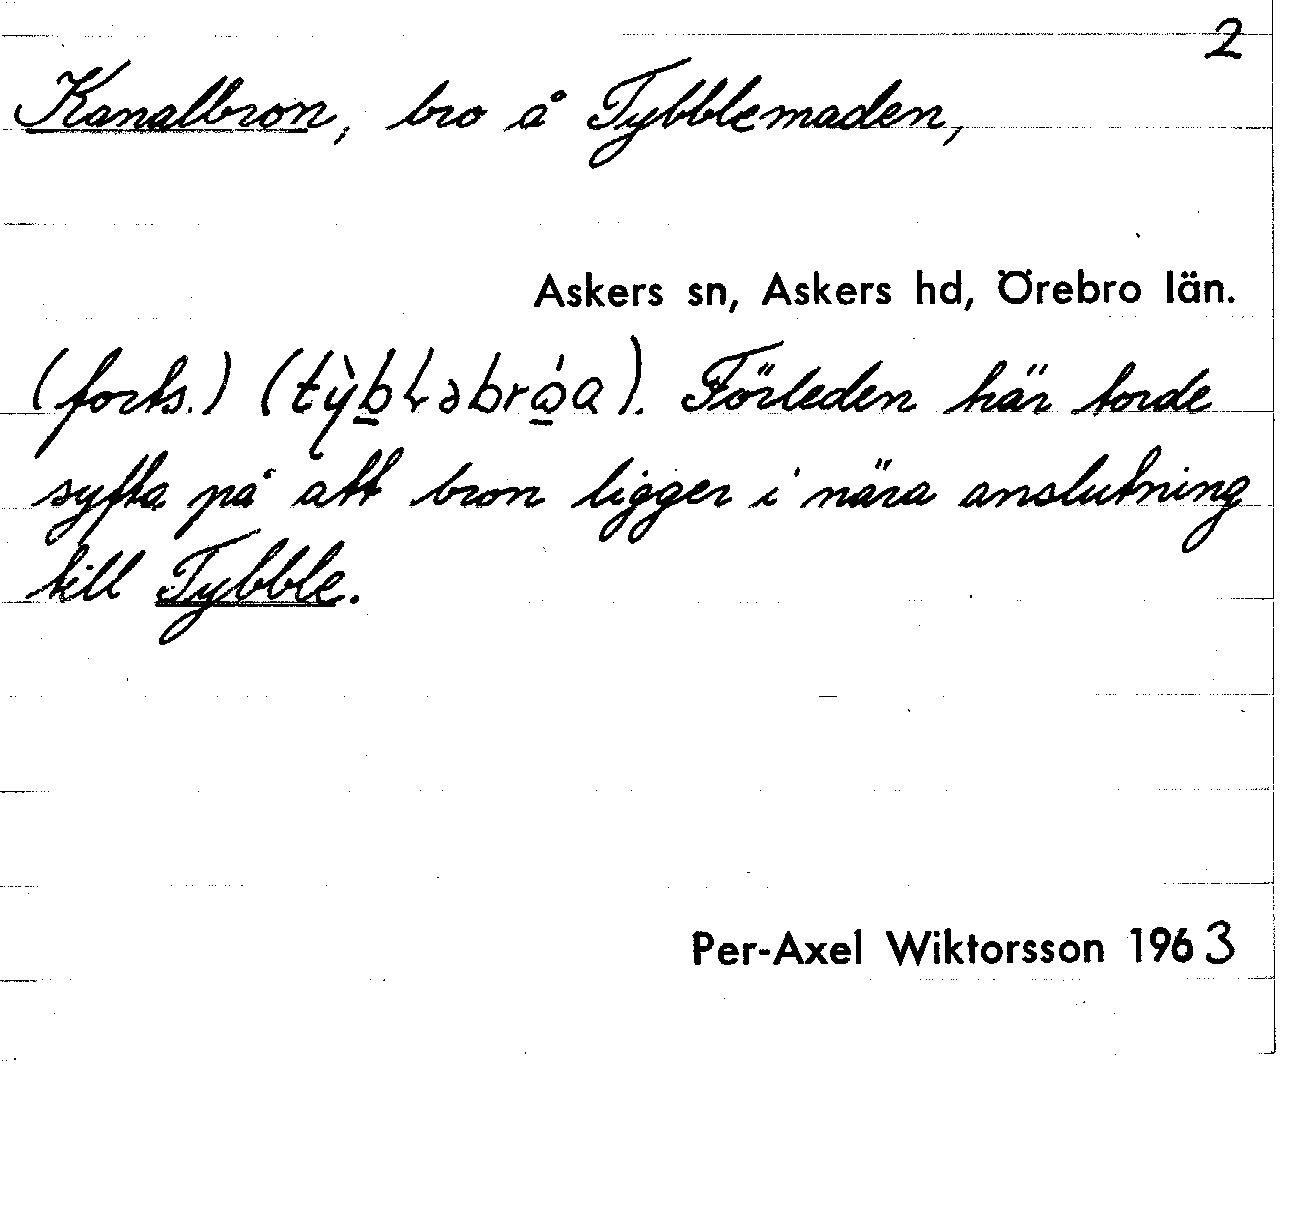 2
Kanalbron, bro å Tybblemaden,
Askers sn, Askers hd, Örebro län.
(forts.) (tỳb̲ɬəbró̲a). Förleden här torde
syfta på att bron ligger i nära anslutning
till Tybble.
Per-Axel Wiktorsson 1963